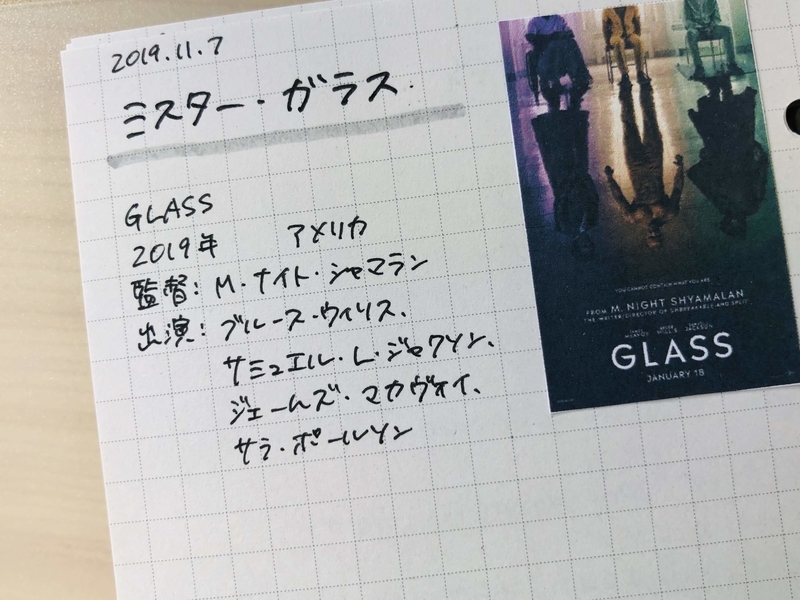 2019.11.7
ミスター・ガラス
GLASS
2019年 アメリカ
監督：M・ナイト・シャマラン
出演：ブルース・ウィリス、
サミュエル・L・ジャクソン、
ジェームズ・マカヴォイ、
サラ・ポールソン
YOU CANNOT CONTAIN WHAT YOU ARE
FROM M. NIGHT SHYAMALAN
THE WRITER/DIRECTOR OF UNBREAKABLE AND SPLIT
GLASS
JANUARY 18